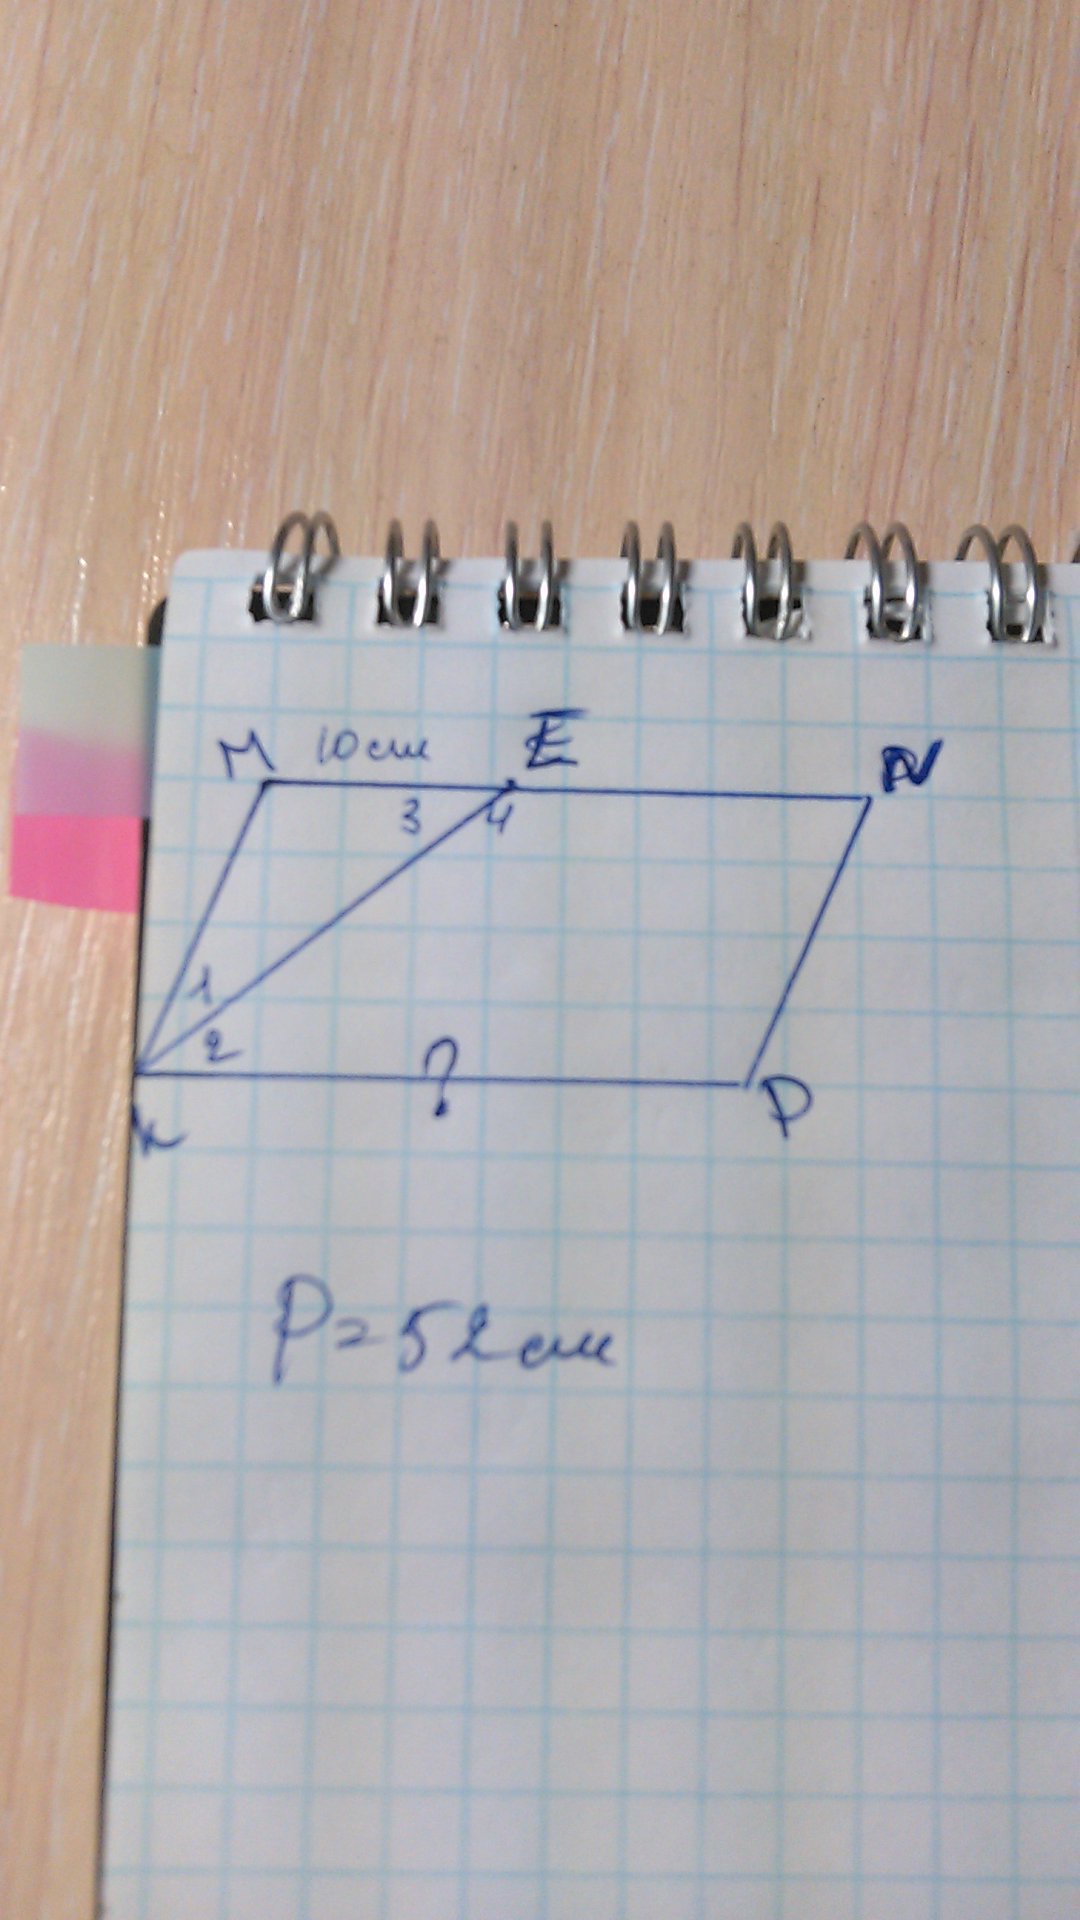 М 10 см E N
3 4
1
2
?
К P
P = 52 см